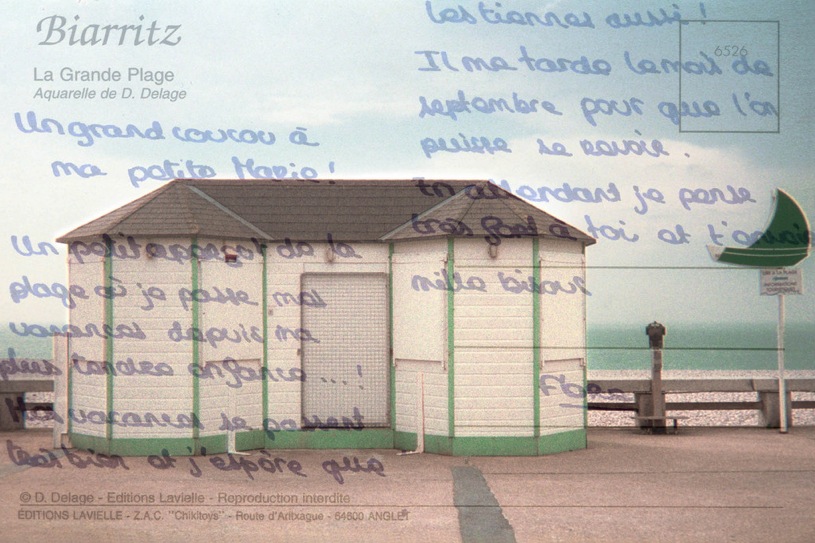 Biarritz
La Grande Plage
Aquarelle de D. Delage
Un grand coucou à
ma petite Marie !
Un petit aperçu de la
plage où je passe mes
vacances depuis ma
plus tendre enfance ... !
Mes vacances se passent
très bien et j'espère que
les tiennes aussi !
Il me tarde le mois de
septembre pour que l'on
puisse se revoir.
En attendant je pense
très fort à toi et t'envoie
mille bisous
6526
© D. Delage - Editions Lavielle - Reproduction interdite
ÉDITIONS LAVIELLE - Z.A.C. "Chikitoys" - Route d'Aritxague - 64600 ANGLET